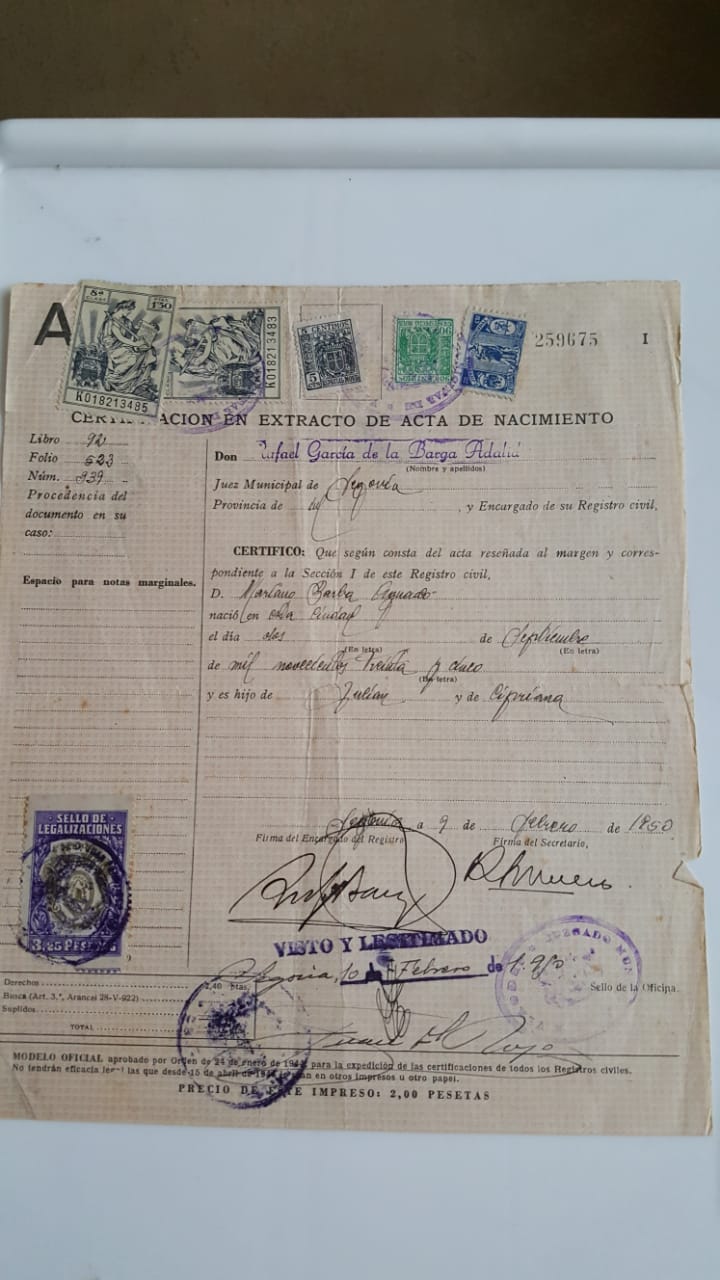 A
8ª
CLASE
1'50
K018213485
K018213483
5 CENTIMOS
5
259675 I
CERTIFICACION EN EXTRACTO DE ACTA DE NACIMIENTO
Libro 92
Folio 523
Núm. 939
Procedencia del
documento en su
caso:
Espacio para notas marginales.
Don Rafael García de la Barga Adalid
(Nombre y apellidos)
Juez Municipal de Segovia
Provincia de id , y Encargado de su Registro civil,
CERTIFICO: Que según consta del acta reseñada al margen y corres-
pondiente a la Sección I de este Registro civil,
D. Mariano Barba Aguado
nació en esta ciudad
el día dos de Septiembre
(En letra) (En letra)
de mil novecientos treinta y cinco
(En letra)
y es hijo de Julián y de Cipriana
Segovia a 9 de febrero de 1950
Firma del Encargado del Registro, Firma del Secretario,
SELLO DE
LEGALIZACIONES
3,25 PESETAS
VISTO Y LEGITIMADO
Segovia, 10 de Febrero de 1.950
JUZGADO MUN
Sello de la Oficina.
Derechos 2,40 ptas.
Busca (Art. 3.º, Arancel 28-V-922)
Suplidos
TOTAL
MODELO OFICIAL aprobado por Orden de 24 de enero de para la expedición de las certificaciones de todos los Registros civiles.
No tendrán eficacia legal las que desde 15 de abril de en otros impresos u otro papel.
PRECIO DE ESTE IMPRESO: 2,00 PESETAS